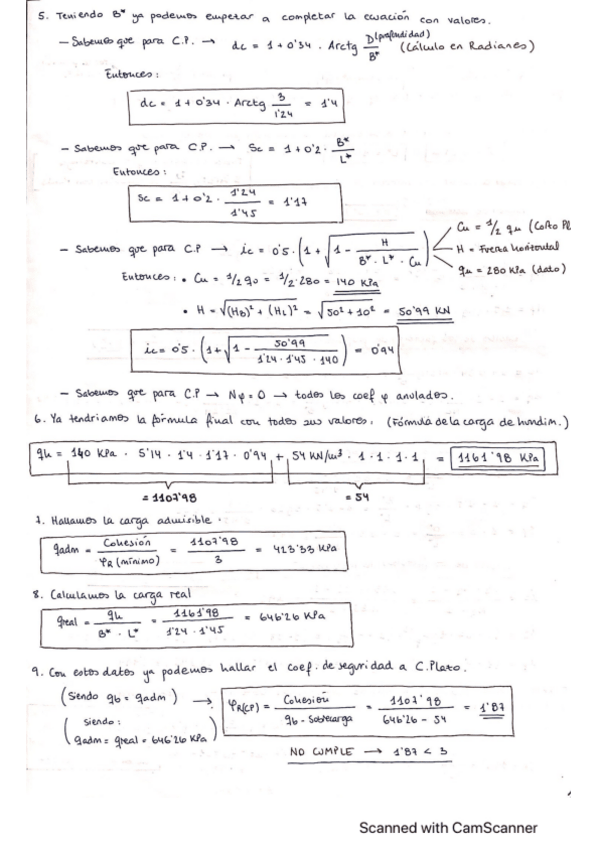 5. Teniendo B* ya podemos empezar a completar la ecuación con valores.
- Sabemos que para C.P. → dc = 1 + 0'34 · Arctg D(profundidad) / B* (Cálculo en Radianes)
Entonces:
dc = 1 + 0'34 · Arctg 3 / 1'24 = 1'4
- Sabemos que para C.P. → Sc = 1 + 0'2 · B* / L*
Entonces:
Sc = 1 + 0'2 · 1'24 / 1'45 = 1'17
- Sabemos que para C.P → ic = 0'5 · (1 + √(1 - H / (B* · L* · Cu)))
Cu = 1/2 qu (Corto Pl
H = Fuerza horizontal
qu = 280 KPa (dato)
Entonces: • Cu = 1/2 q0 = 1/2 · 280 = 140 KPa
• H = √((HB)² + (HL)²) = √(50² + 10²) = 50'99 KN
ic = 0'5 · (1 + √(1 - 50'99 / (1'24 · 1'45 · 140))) = 0'94
- Sabemos que para C.P → Nφ = 0 → todos los coef φ anulados.
6. Ya tendriamos la fórmula final con todos sus valores: (Fórmula de la carga de hundim.)
qh = 140 KPa · 5'14 · 1'4 · 1'17 · 0'94 + 54 KN/m³ · 1 · 1 · 1 · 1 = 1161'98 KPa
= 1107'98 = 54
7. Hallamos la carga admisible ·
qadm = Cohesión / φR (mínimo) = 1107'98 / 3 = 423'33 KPa
8. Calculamos la carga real
qreal = qh / (B* · L*) = 1161'98 / (1'24 · 1'45) = 646'26 KPa
9. Con estos datos ya podemos hallar el coef. de seguridad a C.Plazo.
(Siendo qb = qadm) → φR(CP) = Cohesión / (qb - Sobrecarga) = 1107'98 / (646'26 - 54) = 1'87
(siendo:
qadm = qreal = 646'26 KPa)
NO CUMPLE → 1'87 < 3
Scanned with CamScanner